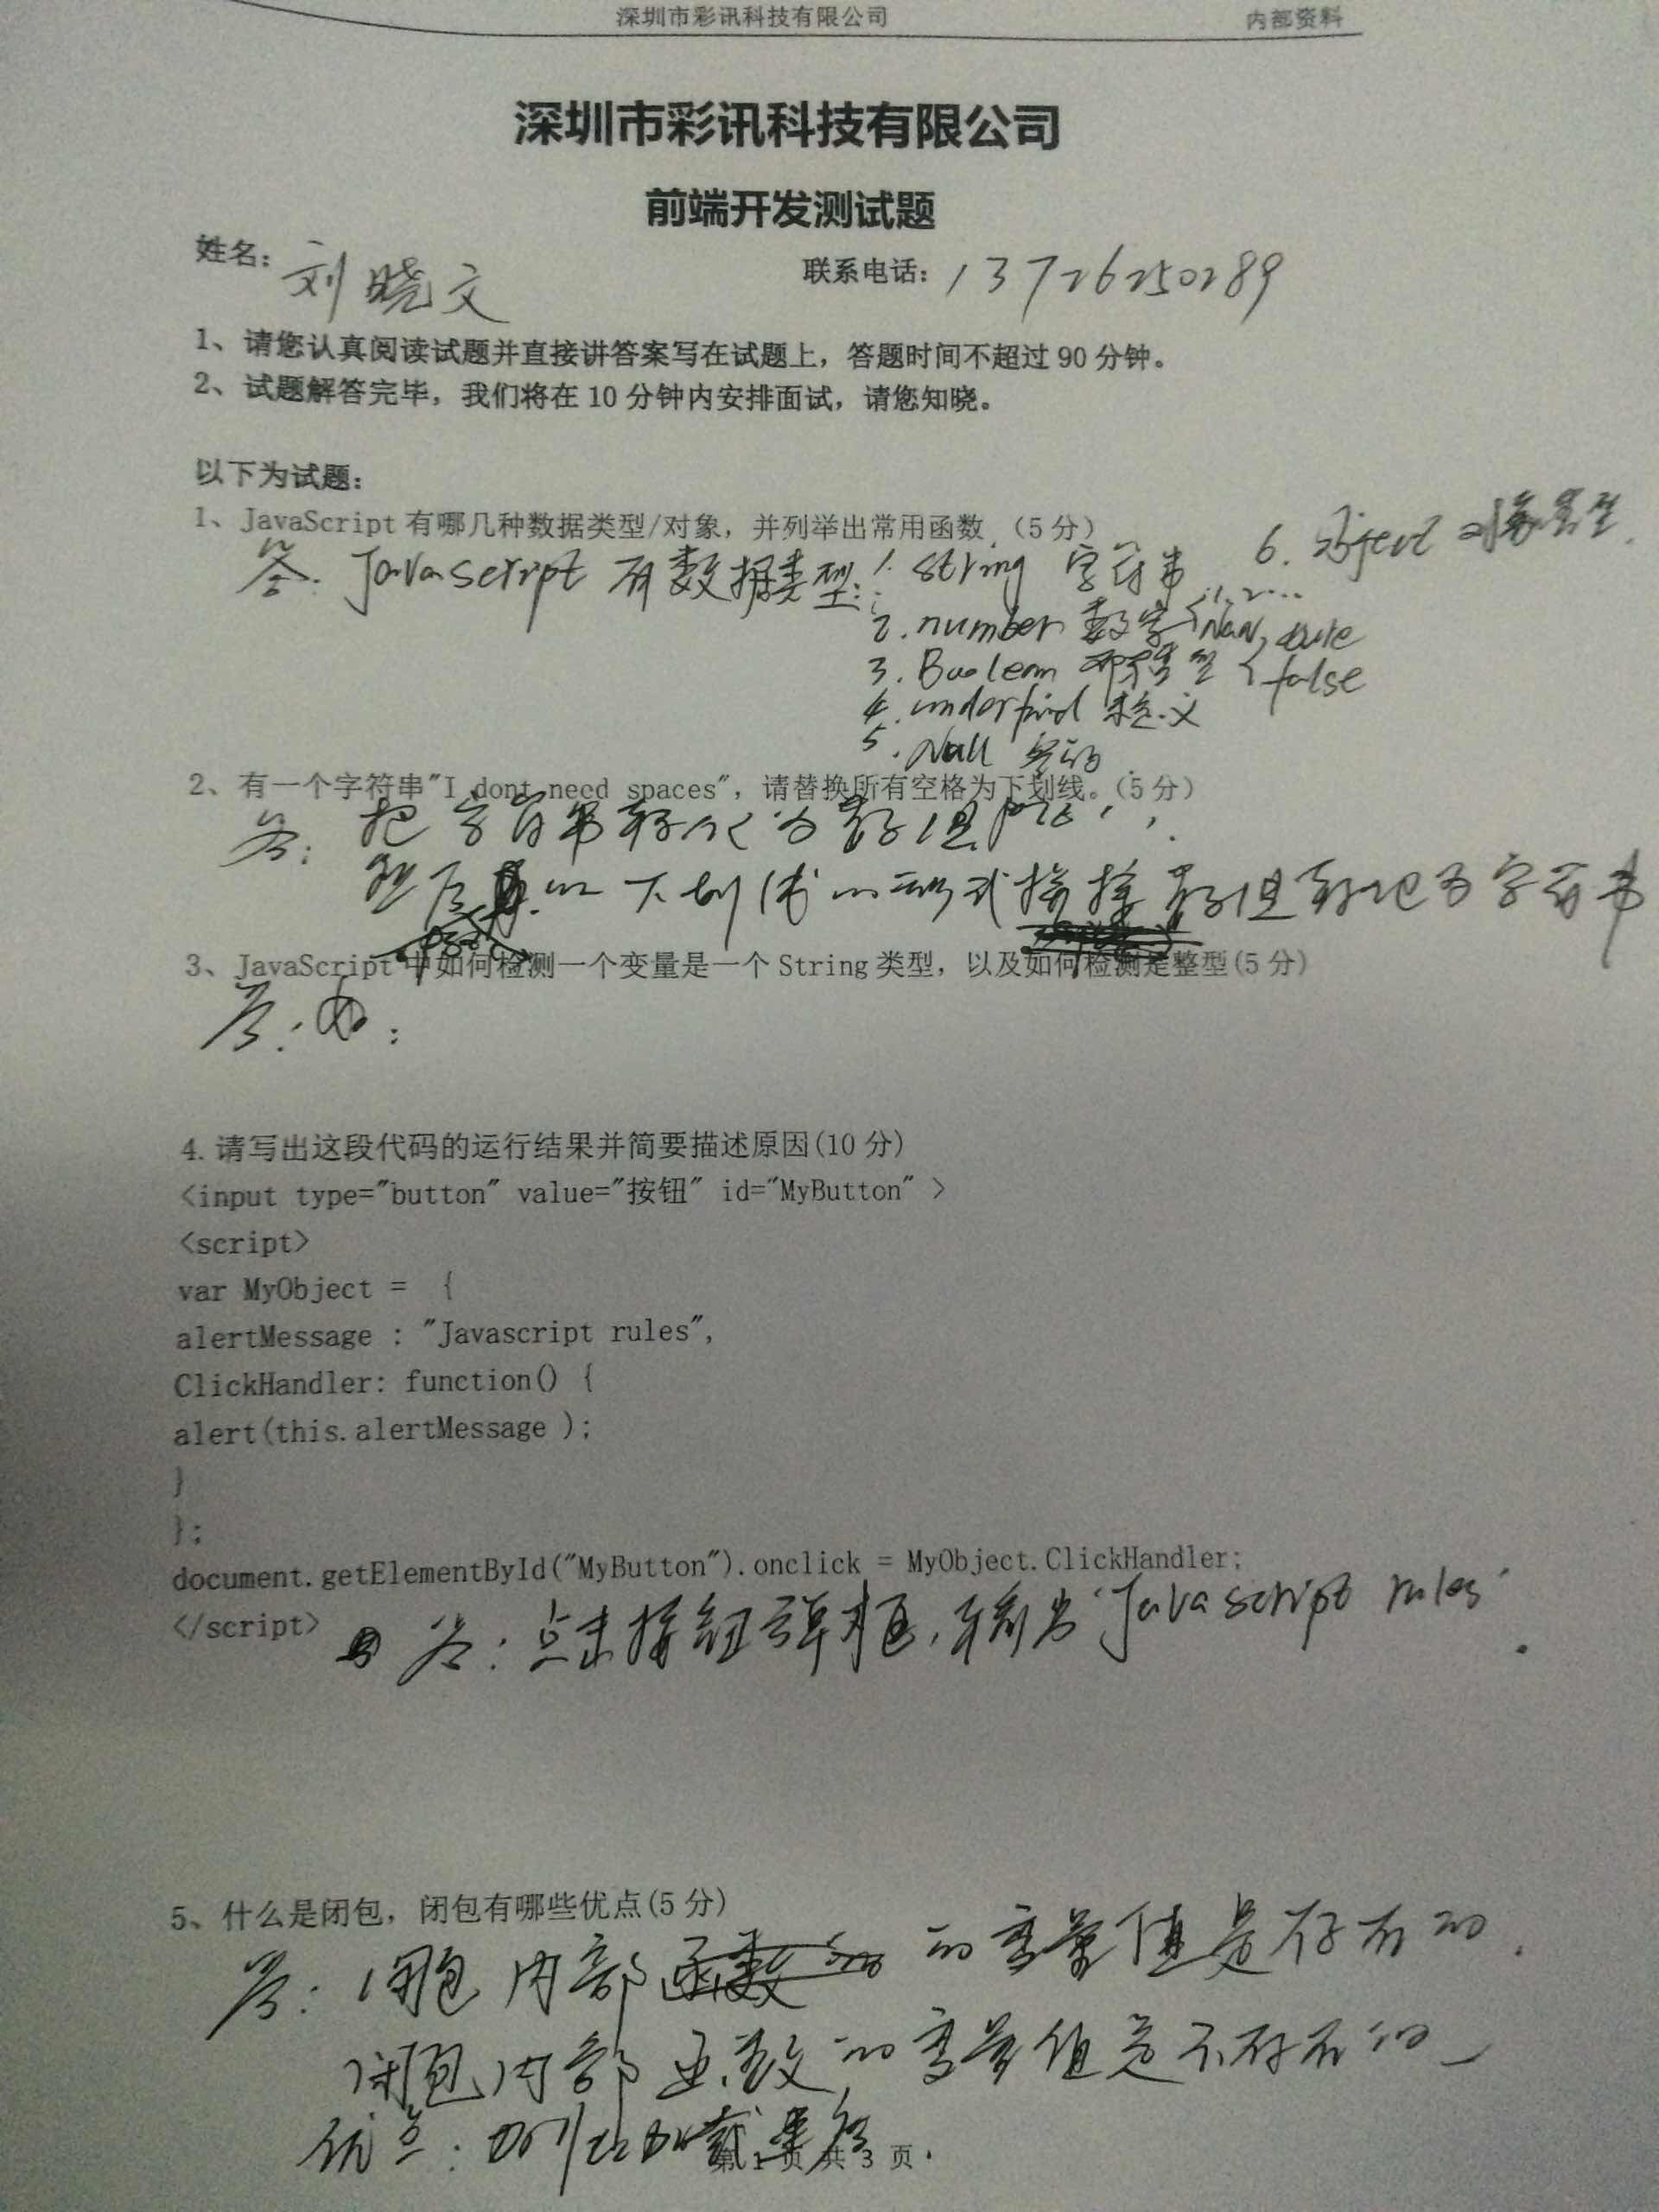 深圳市彩讯科技有限公司 内部资料
深圳市彩讯科技有限公司
前端开发测试题
姓名: 刘晓文 联系电话: 13726250289
1、请您认真阅读试题并直接讲答案写在试题上，答题时间不超过 90 分钟。
2、试题解答完毕，我们将在 10 分钟内安排面试，请您知晓。
以下为试题:
1、JavaScript 有哪几种数据类型/对象，并列举出常用函数.（5 分）
答: Javascript 有数据类型: 1. string 字符串 6. object 对象类型.
2. number 数字 {1,2... NaN,
3. Boolean 布尔类型 {true false
4. underfind 未定义
5. Null 空的
2、有一个字符串"I dont need spaces"，请替换所有空格为下划线。（5 分）
答: 把字符串转化为数组
然后再以下划线的形式拼接数组转化为字符串
3、JavaScript 中如何检测一个变量是一个 String 类型，以及如何检测是整型(5 分)
答:
4. 请写出这段代码的运行结果并简要描述原因(10 分)
<input type="button" value="按钮" id="MyButton" >
<script>
var MyObject = {
alertMessage : "Javascript rules",
ClickHandler: function() {
alert(this.alertMessage );
}
};
document.getElementById("MyButton").onclick = MyObject.ClickHandler;
</script> 答: 点击按钮弹框, 输出'Javascript rules'.
5、什么是闭包，闭包有哪些优点(5 分)
答: 闭包内部的变量值是存在的.
闭包内部函数的变量值是不存在的
优点:
第 1 页 共 3 页